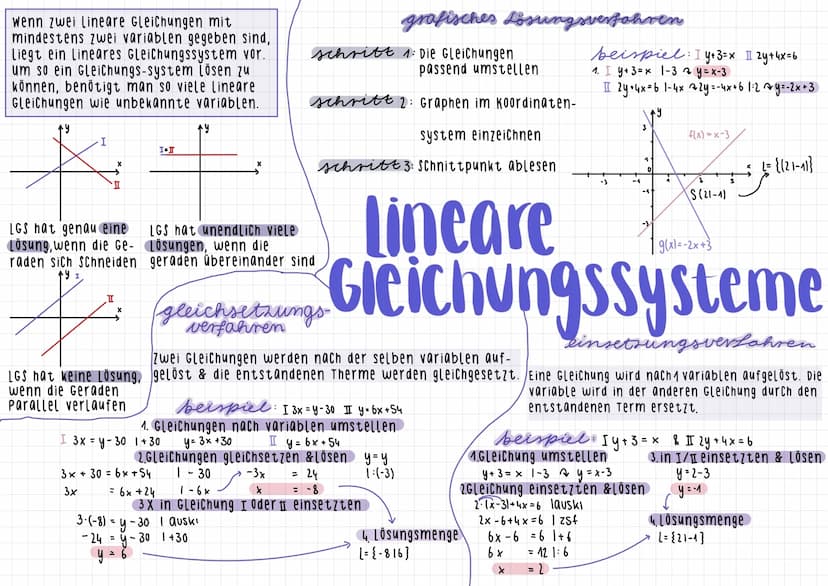 Wenn zwei lineare Gleichungen mit
mindestens zwei variablen gegeben sind,
liegt ein lineares Gleichungssystem vor.
um so ein Gleichungs-system lösen zu
können, benötigt man so viele lineare
Gleichungen wie unbekannte variablen.
y
I
x
II
y
I=II
x
LGS hat genau eine
Lösung, wenn die Ge-
raden sich schneiden
LGS hat unendlich viele
Lösungen, wenn die
geraden übereinander sind
y
I
II
x
LGS hat keine Lösung,
wenn die Geraden
Parallel verlaufen
grafisches Lösungsverfahren
schritt 1: Die Gleichungen
passend umstellen
schritt 2: Graphen im Koordinaten-
system einzeichnen
schritt 3: Schnittpunkt ablesen
beispiel: I y+3=x II 2y+4x=6
1. I y+3=x |-3 ↷ y=x-3
II 2y+4x=6 |-4x ↷ 2y=-4x+6 |:2 ↷ y=-2x+3
y
f(x)=x-3
x
L={(2|-1)}
S(2|-1)
g(x)=-2x+3
Lineare
Gleichungssysteme
gleichsetzungs-
verfahren
Zwei Gleichungen werden nach der selben variablen auf-
gelöst & die entstandenen Therme werden gleichgesetzt.
beispiel: I 3x=y-30 II y=6x+54
1. Gleichungen nach variablen umstellen
I 3x=y-30 |+30 y=3x+30 II y=6x+54
2.Gleichungen gleichsetzen &lösen y=y
3x + 30 = 6x+54 |-30 -3x = 24 |:(-3)
3x = 6x+24 |-6x x = -8
3 X in Gleichung I oder II einsetzten
3·(-8) = y-30 | auskl
-24 = y-30 |+30
y = 6
4. Lösungsmenge
L={-8|6}
einsetzungsverfahren
Eine Gleichung wird nach 1 variablen aufgelöst. Die
variable wird in der anderen Gleichung durch den
entstandenen Term ersetzt.
beispiel: I y+3=x & II 2y+4x=6
1.Gleichung umstellen
y+3=x |-3 ↷ y=x-3
2Gleichung einsetzten &lösen
2·(x-3)+4x=6 |auskl
2x-6+4x=6 | zsf
6x-6 =6 |+6
6x =12 |:6
x = 2
3.in I/II einsetzten & lösen
y=2-3
y=-1
4.Lösungsmenge
L={2|-1}